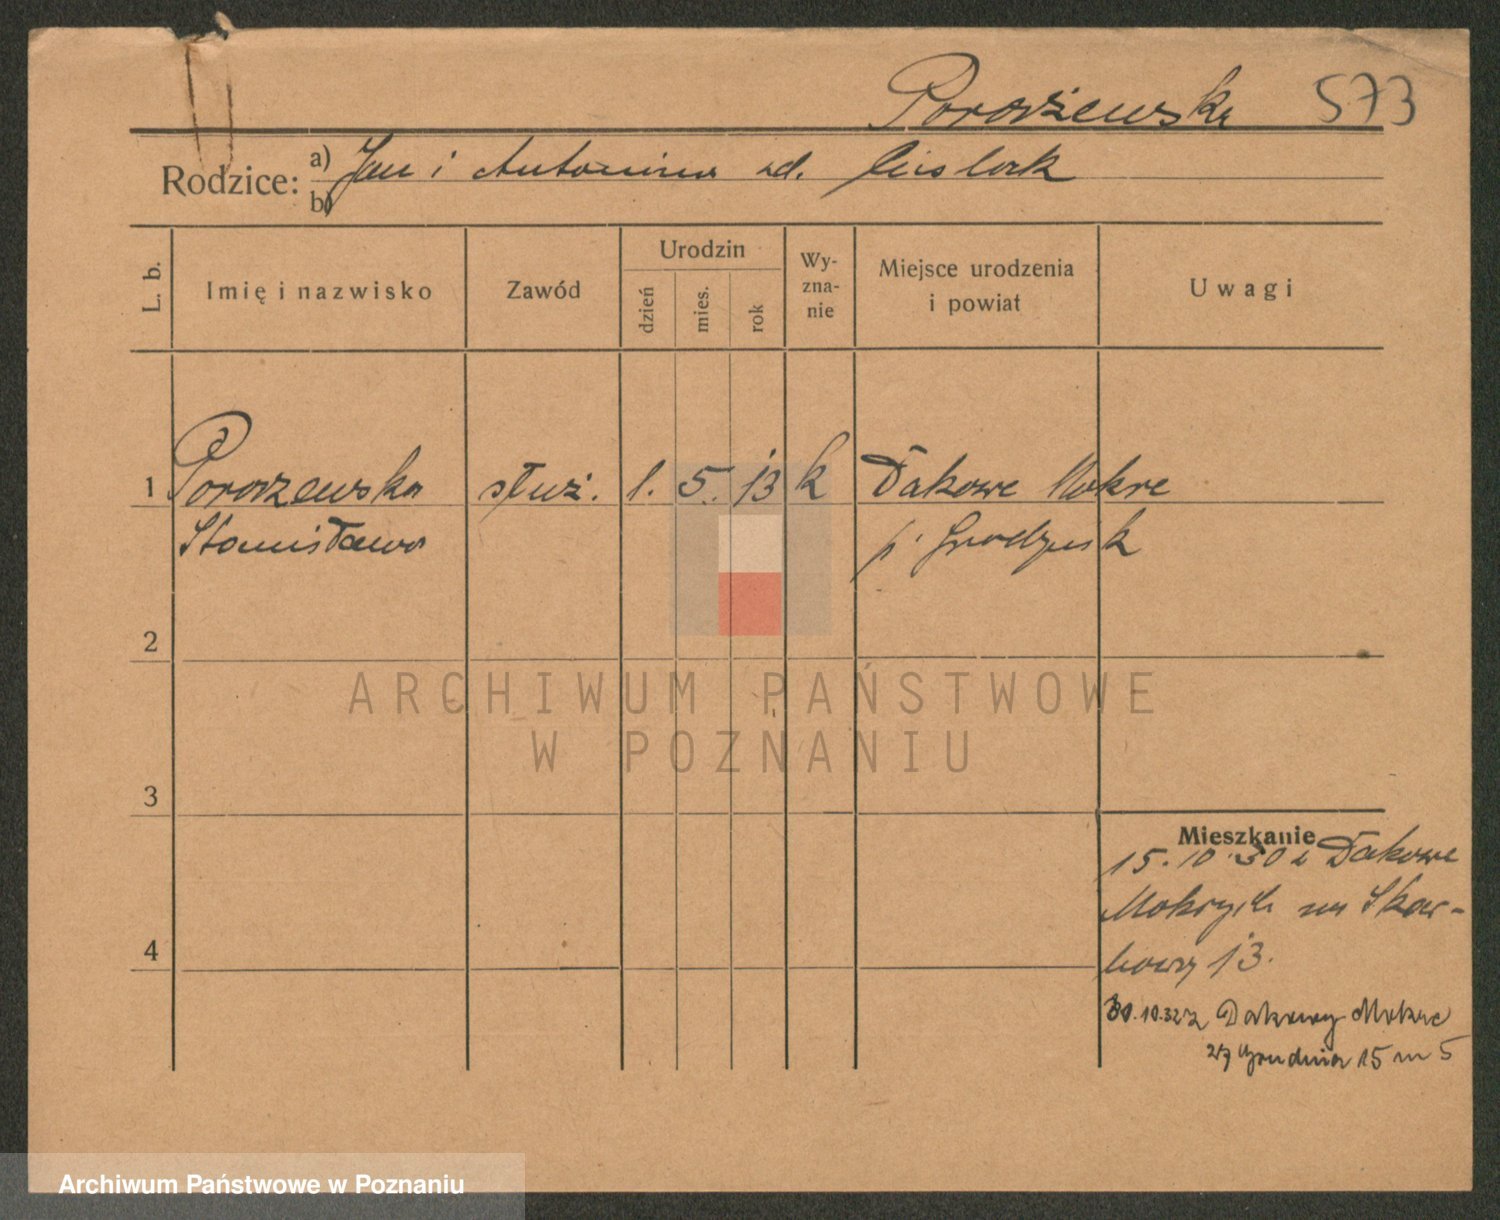 Porożewska 573
Rodzice: a) Jan i Antonina zd. Cieslak
b)
L. b.
Imię i nazwisko
Zawód
Urodzin
dzień
mies.
rok
Wy-
zna-
nie
Miejsce urodzenia
i powiat
Uwagi
1 służ. 1. 5. 13 k Dakowe Mokre
Stanisława p. Grodzisk
2
3
4
Mieszkanie
15.10.30 z Dakowe
Mokrych na Skar-
bowy 13.
30.10.32 z Dakowy Mokre
27 Grudnia 15 m 5
ARCHIWUM PAŃSTWOWE
W POZNANIU
Archiwum Państwowe w Poznaniu